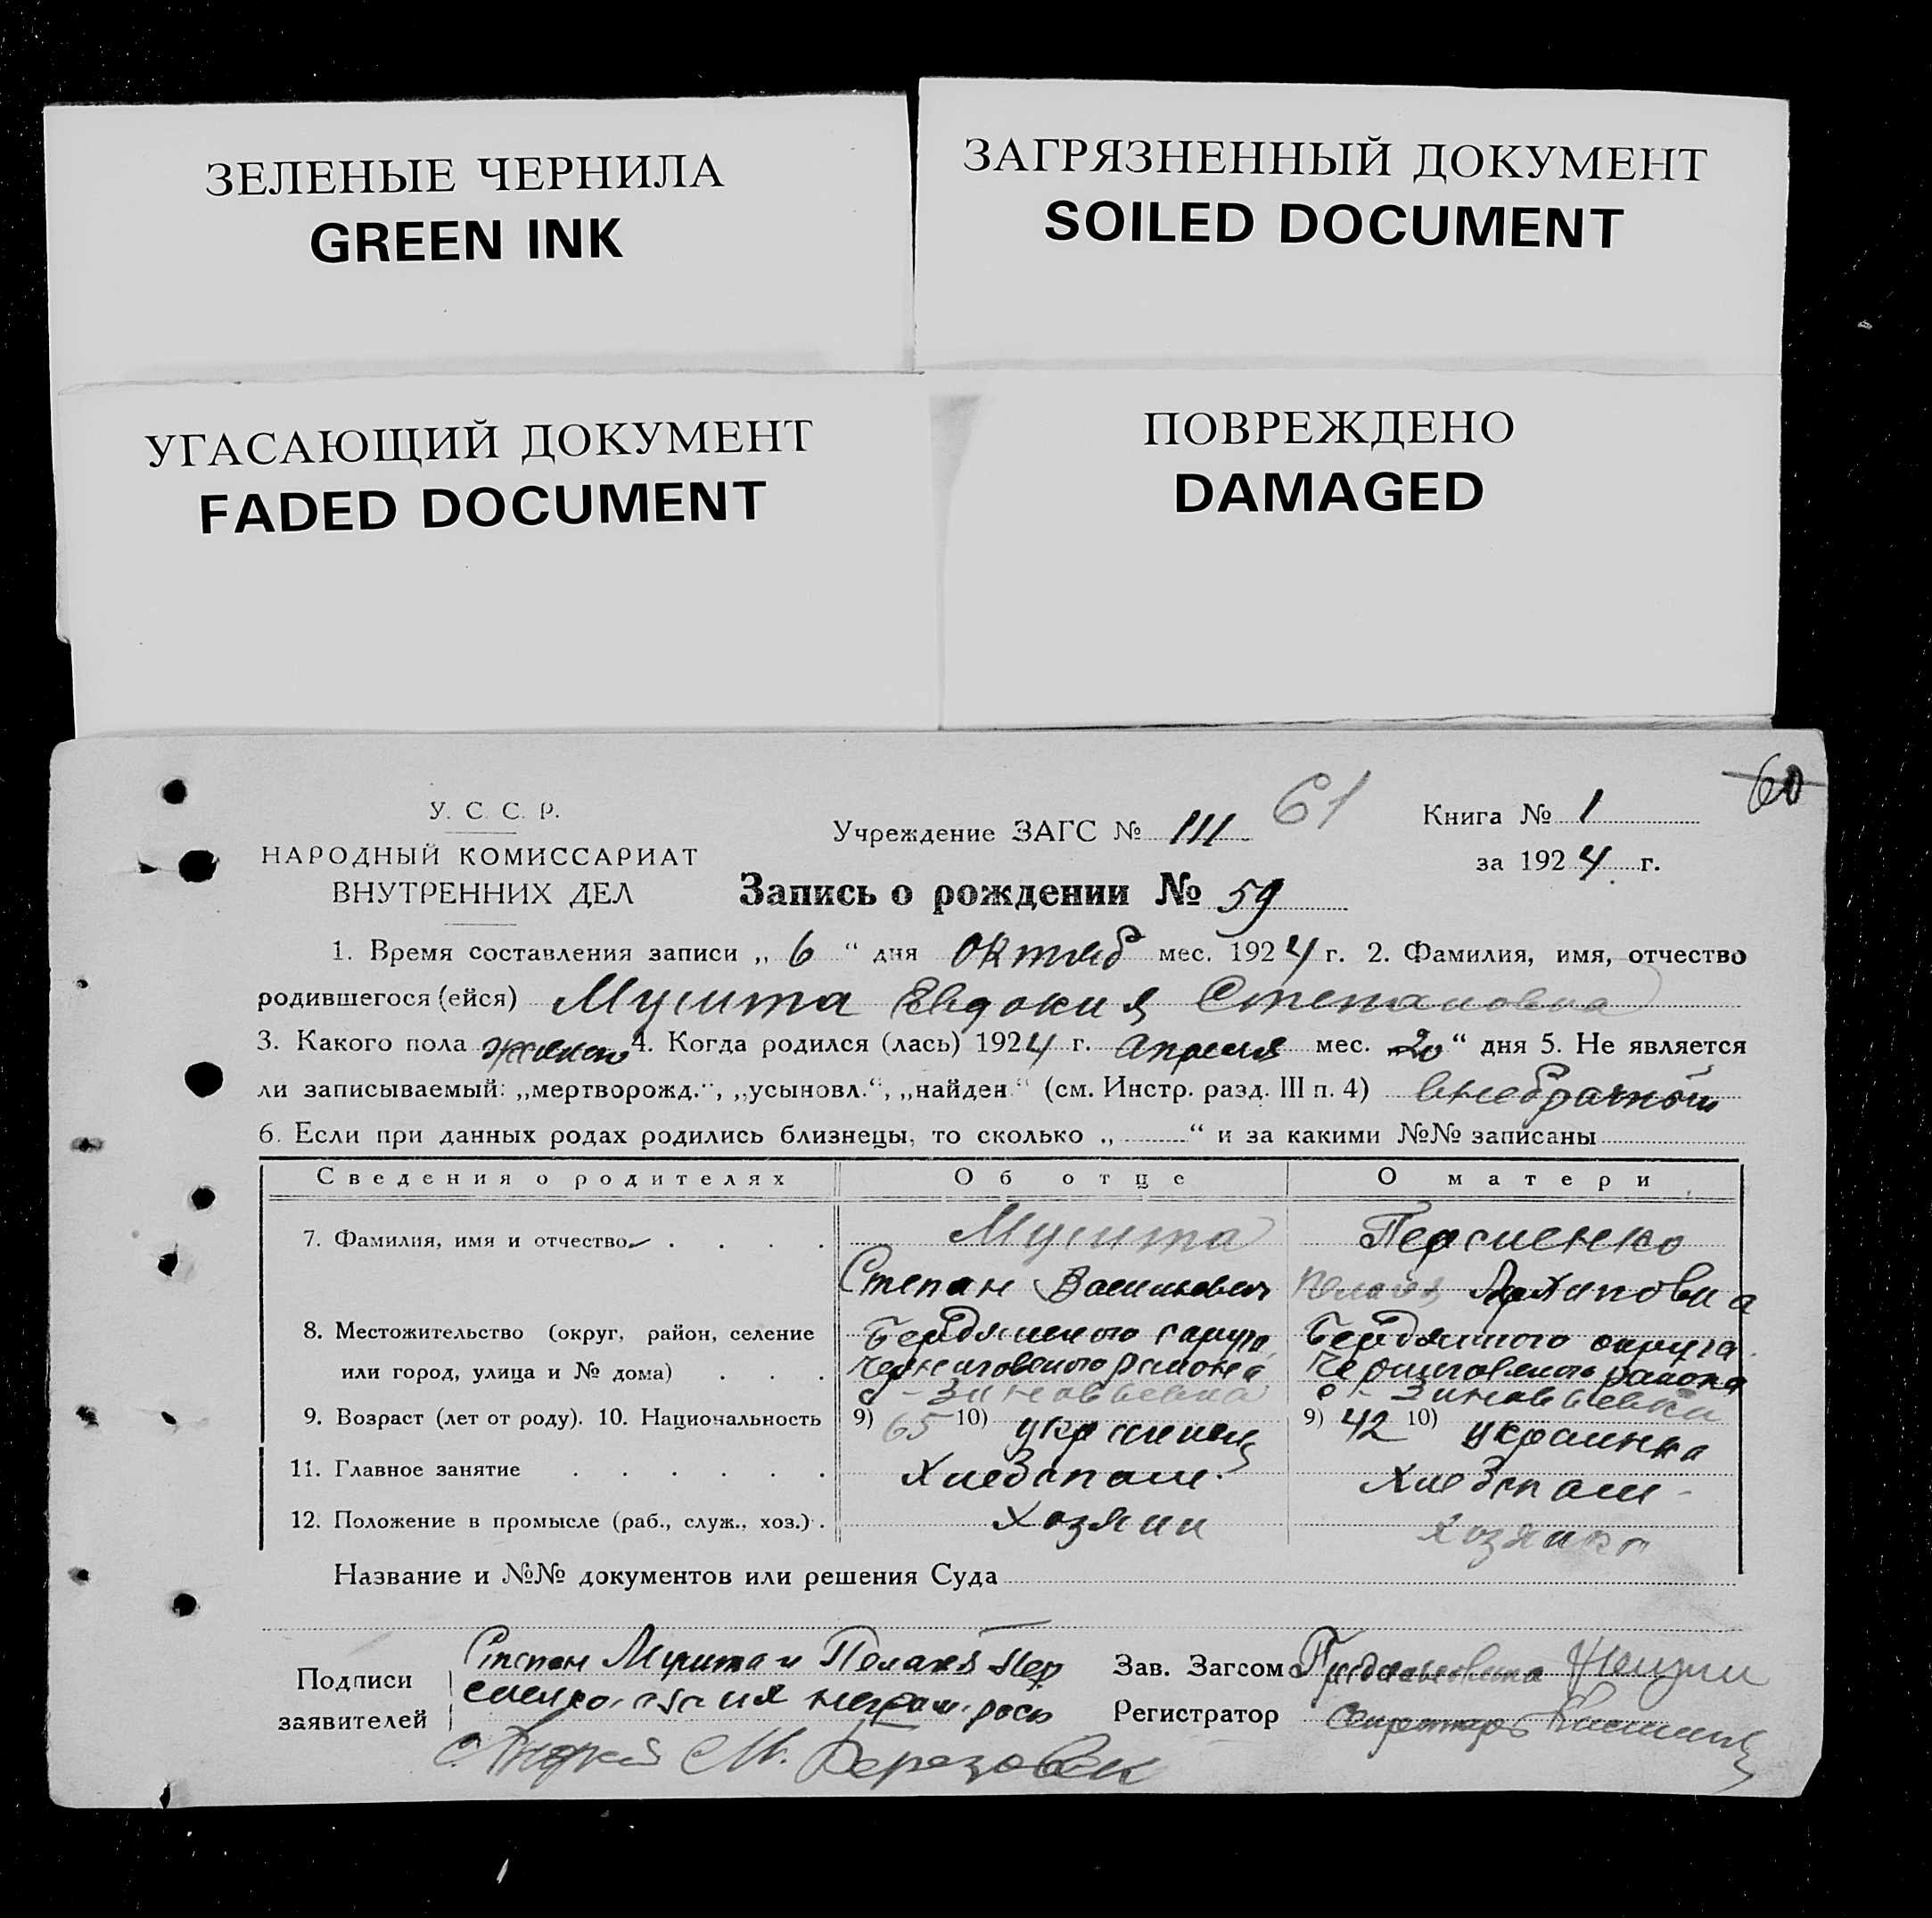 ЗЕЛЕНЫЕ ЧЕРНИЛА
GREEN INK
ЗАГРЯЗНЕННЫЙ ДОКУМЕНТ
SOILED DOCUMENT
УГАСАЮЩИЙ ДОКУМЕНТ
FADED DOCUMENT
ПОВРЕЖДЕНО
DAMAGED
60
У. С. С. Р.
НАРОДНЫЙ КОМИССАРИАТ
ВНУТРЕННИХ ДЕЛ
Учреждение ЗАГС № III 61
Книга № 1
за 1924 г.
Запись о рождении № 59
1. Время составления записи „ 6 “ дня октяб мес. 1924 г. 2. Фамилия, имя, отчество
родившегося (ейся) Евдокия Степановна
3. Какого пола женского 4. Когда родился (лась) 1924 г. Апреля мес. 20 “ дня 5. Не является
ли записываемый: „мертворожд.“, „усыновл.“, „найден“ (см. Инстр. разд. III п. 4) внебрачной
6. Если при данных родах родились близнецы, то сколько „ “ и за какими №№ записаны
Сведения о родителях Об отце О матери
7. Фамилия, имя и отчество
Степан Васильевич Архиповна
8. Местожительство (округ, район, селение Бердянского округа Бердянского округа
или город, улица и № дома) Черниговского района Черниговского района
с - Зиновьевка с - Зиновьевка
9. Возраст (лет от роду). 10. Национальность 9) 65 10) украинец 9) 42 10) украинка
11. Главное занятие Хлебопаш. Хлебопаш -
12. Положение в промысле (раб., служ., хоз.) Хозяин Хозяйка
Название и №№ документов или решения Суда
Подписи Степан и
заявителей
Зав. Загсом
Регистратор Секретарь
Андрей М.